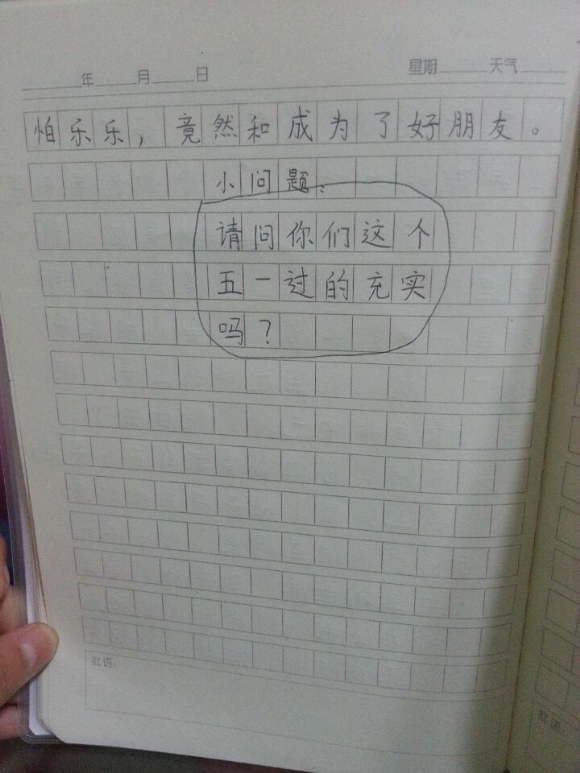 年 月 日 星期 天气
怕乐乐，竟然和成为了好朋友。
小问题：
请问你们这个
五一过的充实
吗？
批语：